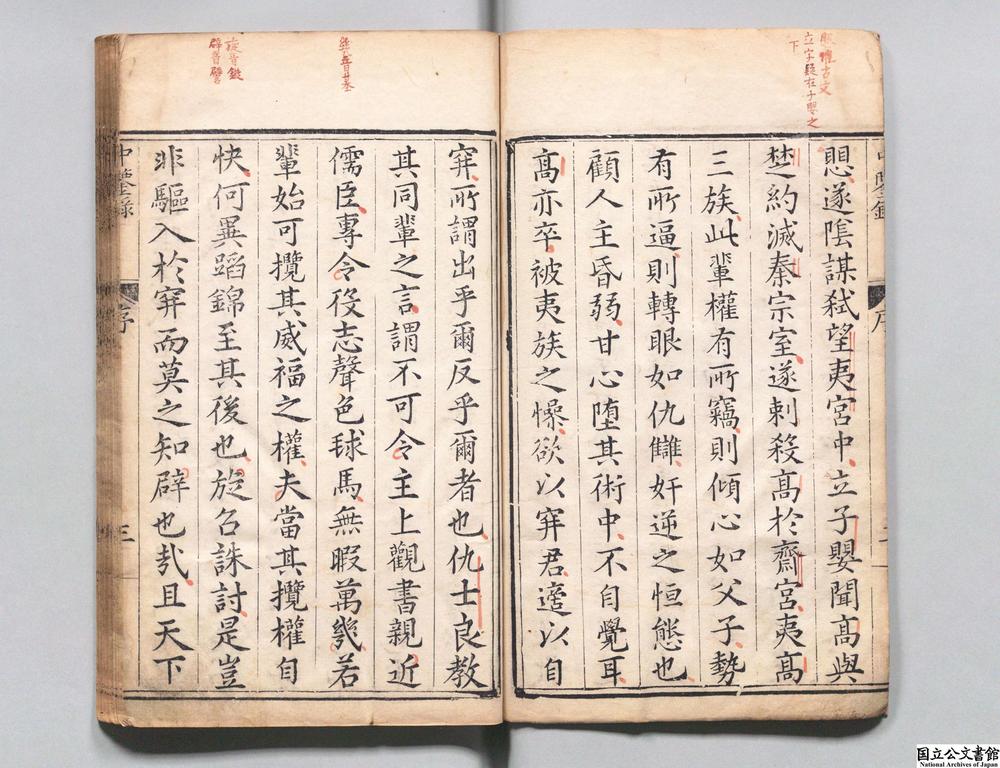 愳遂陰謀弑望夷宮中立子嬰聞髙與
楚約滅秦宗室遂刺殺髙於齋宮夷髙
三族此輩權有所竊則傾心如父子勢
有所逼則轉眼如仇讎奸逆之恒態也
顧人主昏弱甘心堕其術中不自覺耳
髙亦卒被夷族之懆欲以穽君適以自
穽所謂出乎爾反乎爾者也仇士良教
其同輩之言謂不可令主上觀書親近
儒臣專令役志聲色毬馬無暇萬幾若
輩始可攬其威福之權夫當其攬權自
快何異蹈錦至其後也旋召誅討是豈
非驅入於穽而莫之知辟也㢤且天下
中鑒錄
序
三
立字疑在子嬰之
下
辟音譬
国立公文書館
National Archives of Japan